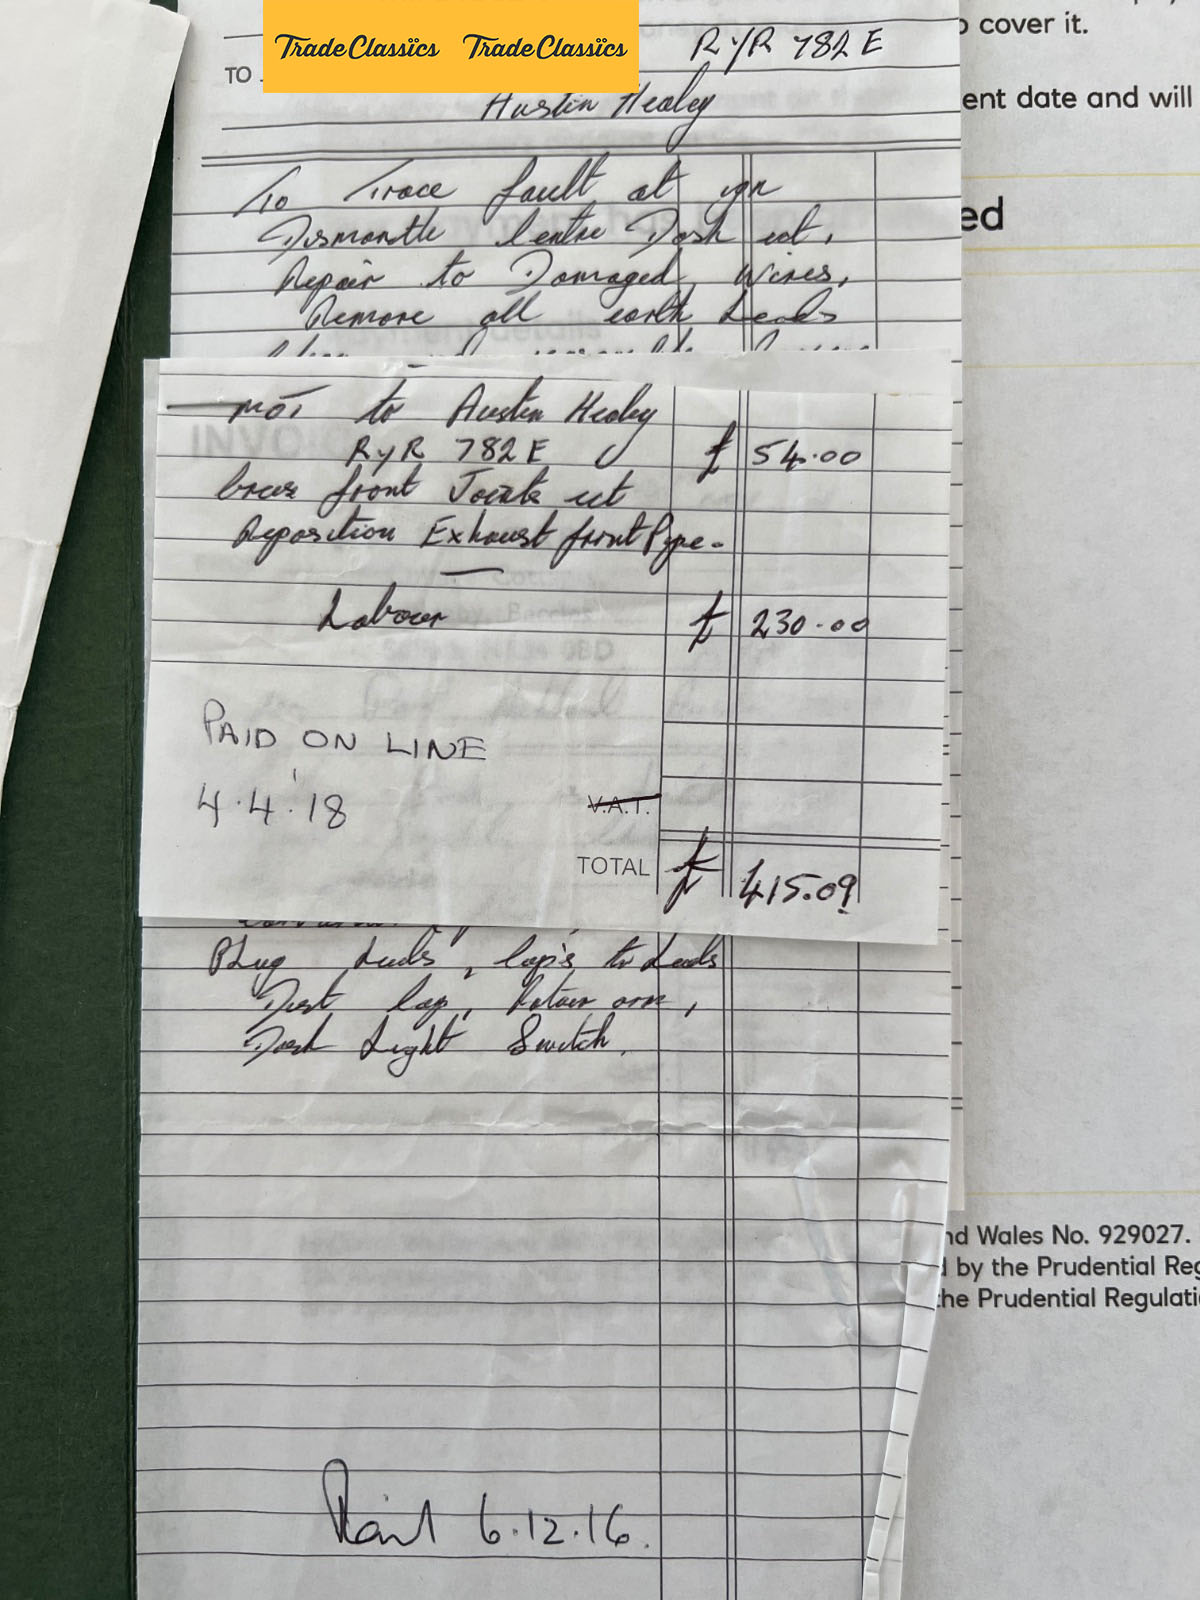 TradeClassics TradeClassics
RYR 782 E
TO
Austin Healey
To Trace fault at ign
Dismantle Centre Dash ect,
Repair to Damaged Wires,
Remove all earth Leads
MOT to Austin Healey
RYR 782 E £ 54.00
front ect
Reposition Exhaust front Pipe.
Labour £ 230.00
PAID ON LINE
4.4.18
V.A.T.
TOTAL £ 415.09
Plug Leads, Caps to Leads
Dist Cap, Rotor arm,
Dash Light Switch.
Paid 6.12.16.
o cover it.
ent date and will
ed
nd Wales No. 929027.
d by the Prudential Reg
the Prudential Regulati